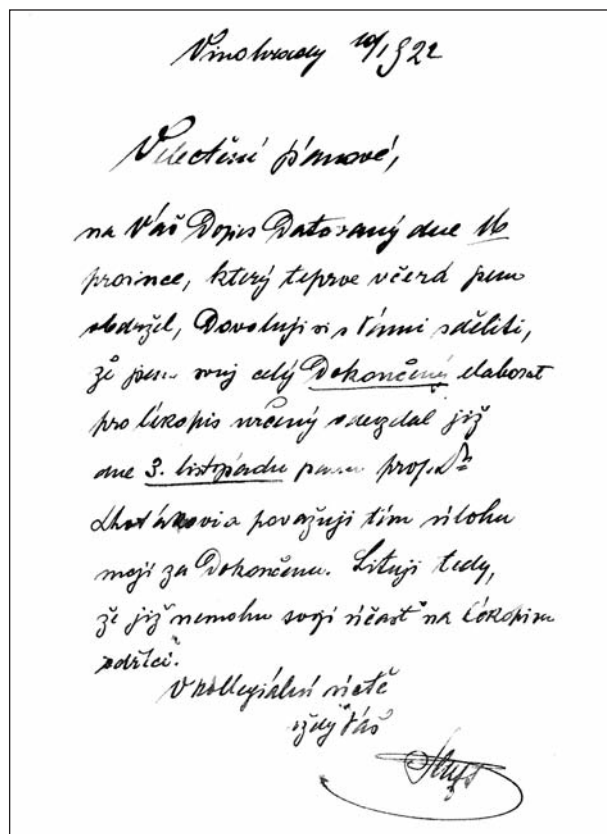 Vinohrady 10/1 922
Velectění pánové,
na Váš Dopis Datovaný dne 16
prosince, který teprve včera jsem
obdržel, Dovoluji si s Vámi sděliti,
že jsem svůj celý Dokončený elaborát
pro lékopis určený odevzdal již
dne 3. listopadu panu prof. Dr
Lhotákovi a považuji tím úlohu
moji za Dokončenu. Lituji tedy,
že již nemohu svoji účast na Lékopisu
zdržeti.
V kollegiální úctě
vždy Váš